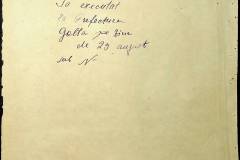 S'a executat
la Prefectura
Golta pe ziua
de 29 august
sub No